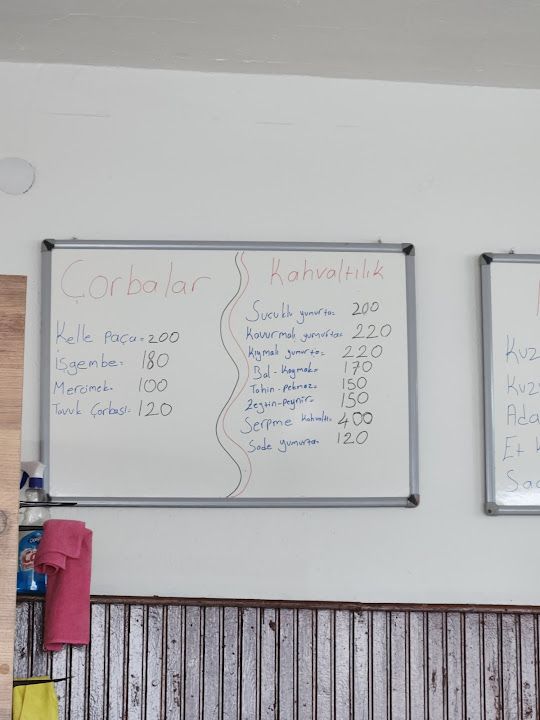 Çorbalar
Kelle paça= 200
İşgembe= 180
Mercimek= 100
Tavuk Çorbası= 120
Kahvaltılık
Sucuklu yumurta= 200
Kavurmalı yumurta= 220
Kıymalı yumurta= 220
Bal-Kaymak= 170
Tahin-pekmez= 150
Zeytin-Peynir= 150
Serpme kahvaltı= 400
Sade yumurta= 120
Kuz
Kuz
Ada
Et